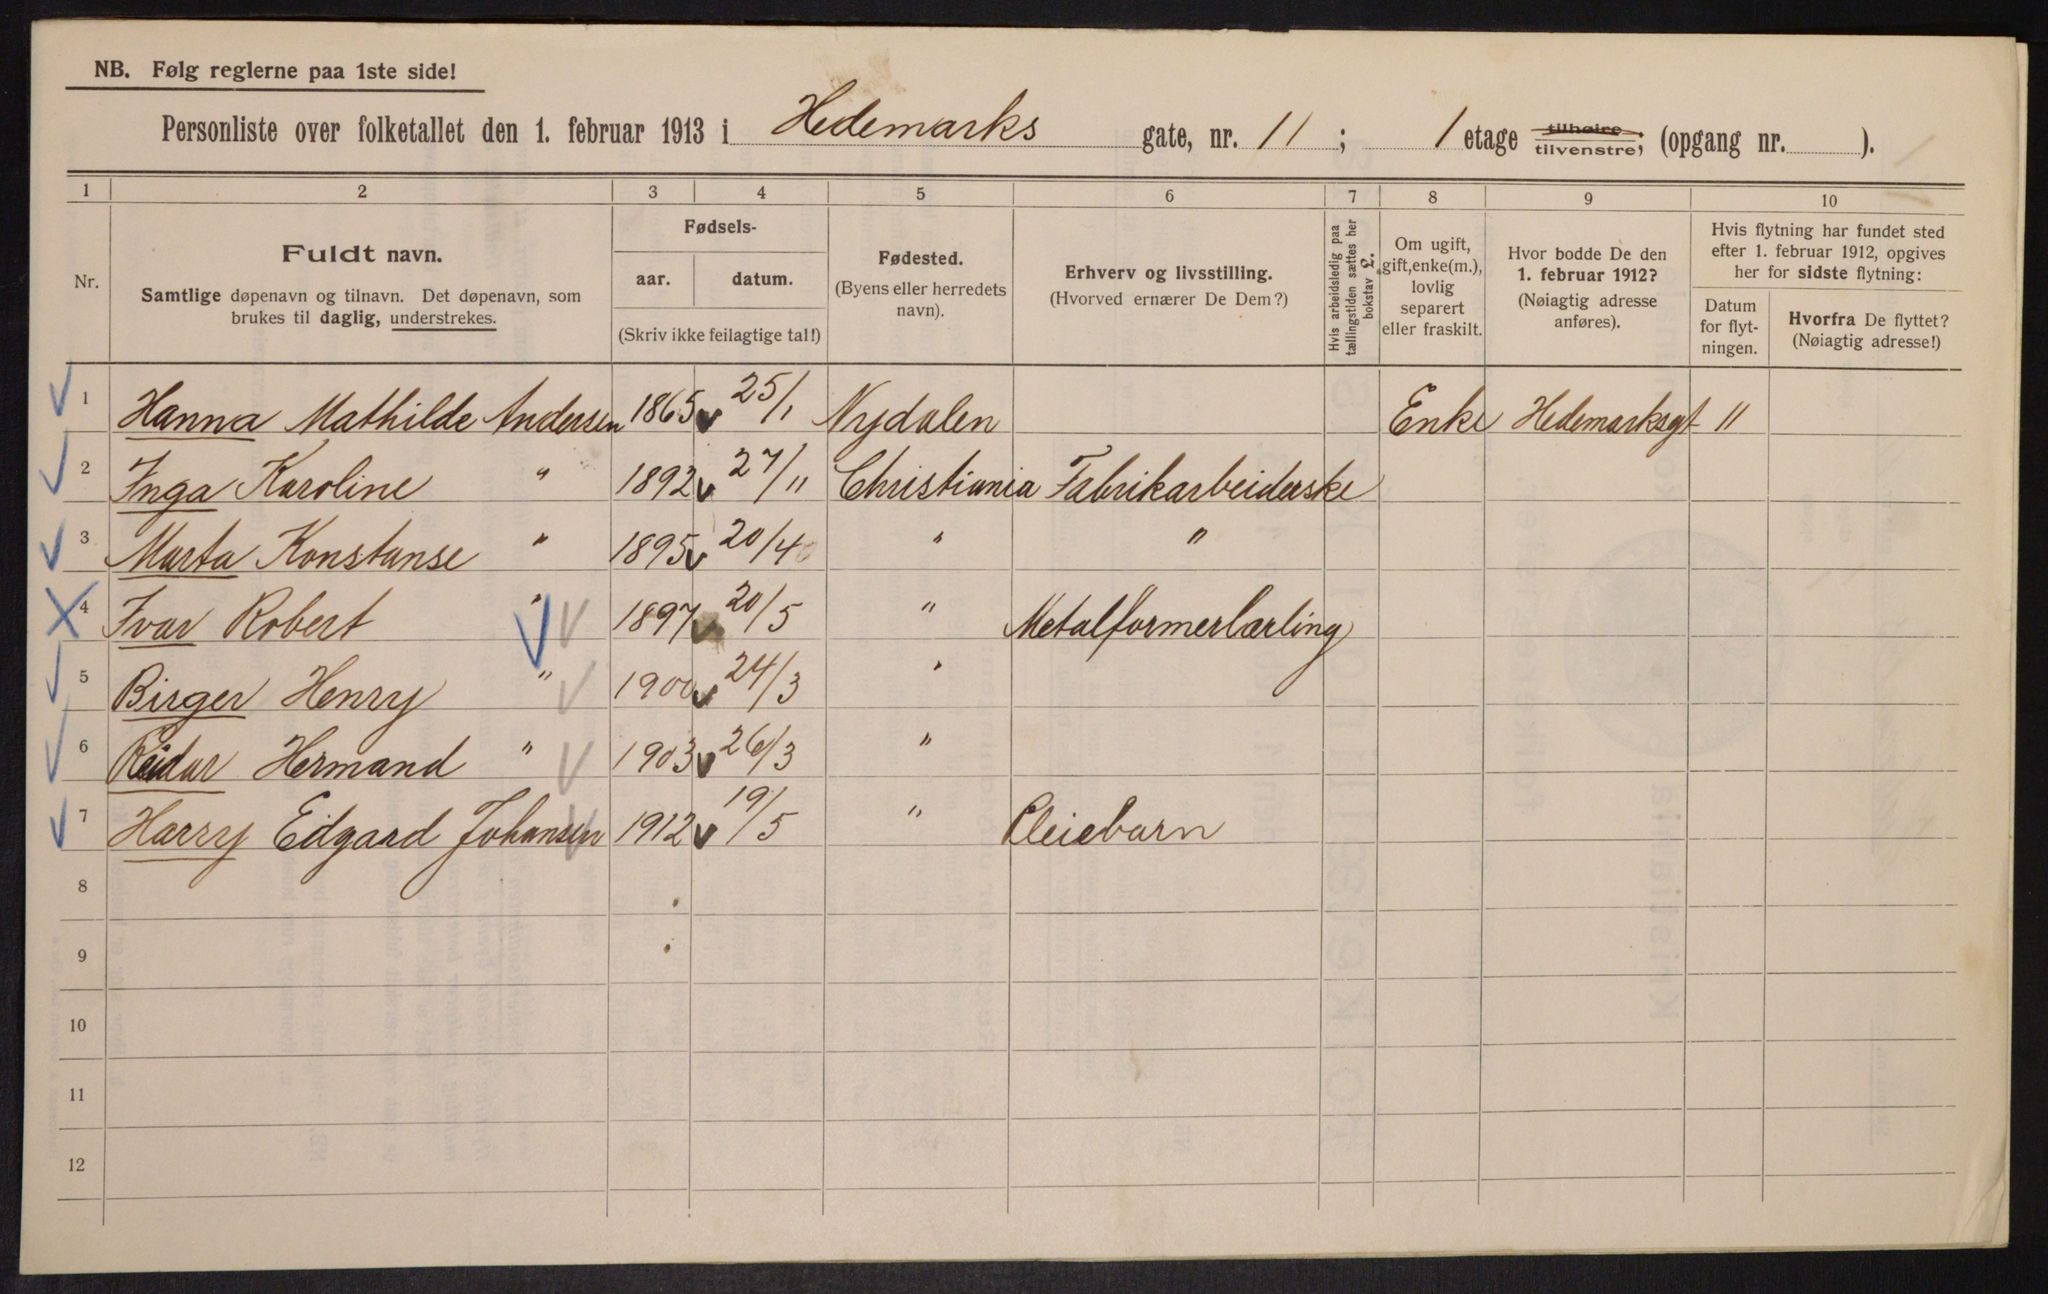 NB. Følg reglerne paa 1ste side!
Personliste over folketallet den 1. februar 1913 i Hedemarks gate, nr. 11 ; 1 etage tilhøire tilvenstre, (opgang nr. ).
1 2 3 4 5 6 7 8 9 10
Nr.
Fuldt navn.
Samtlige døpenavn og tilnavn. Det døpenavn, som
brukes til daglig, understrekes.
Fødsels-
aar. datum.
(Skriv ikke feilagtige tal!)
Fødested.
(Byens eller herredets
navn).
Erhverv og livsstilling.
(Hvorved ernærer De Dem?)
Hvis arbeidsledig paa
tællingstiden sættes her
bokstav £.
Om ugift,
gift, enke(m.),
lovlig
separert
eller fraskilt.
Hvor bodde De den
1. februar 1912?
(Nøiagtig adresse
anføres).
Hvis flytning har fundet sted
efter 1. februar 1912, opgives
her for sidste flytning:
Datum
for flyt-
ningen.
Hvorfra De flyttet?
(Nøiagtig adresse!)
1 Hanna Mathilde Andersen 1865 25/1 Nydalen Enke Hedemarksgt 11
2 Inga Karoline " 1892 27/11 Christiania Fabrikarbeiderske
3 Marta Konstanse " 1895 20/4 " "
4 Ivar Robert " 1897 20/5 " Metalformerlærling
5 Birger Henry " 1900 24/3 "
6 Reidar Hermand " 1903 26/3 "
7 Harry Edgard Johansen 1912 19/5 " Pleiebarn
8
9
10
11
12